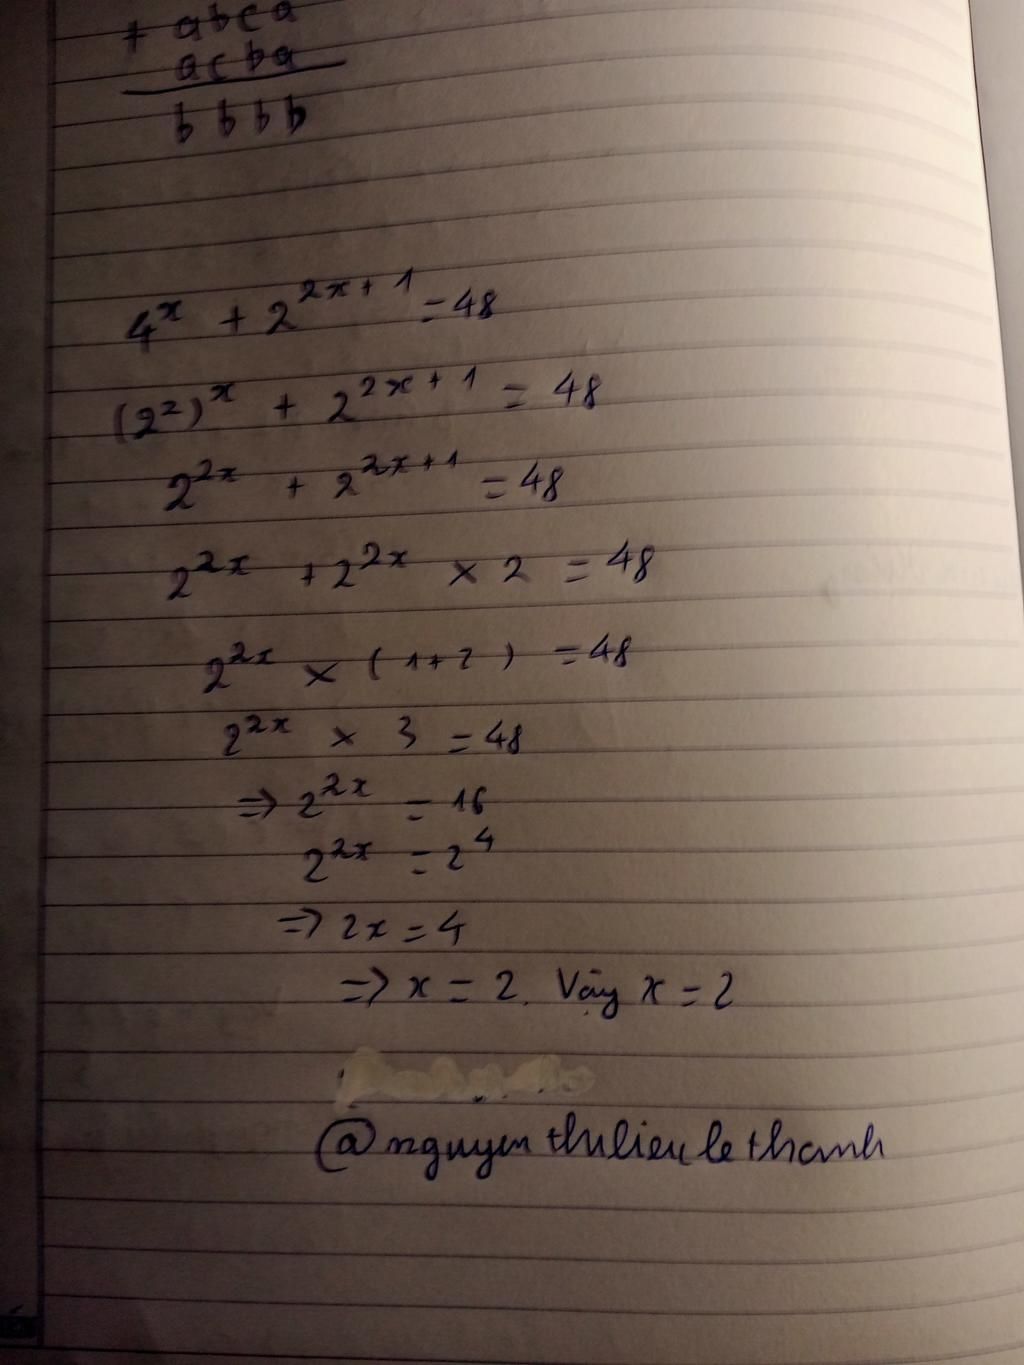 + abca
acba
bbbb
4^x + 2^{2x+1} = 48
(2^2)^x + 2^{2x+1} = 48
2^{2x} + 2^{2x+1} = 48
2^{2x} + 2^{2x} × 2 = 48
2^{2x} × (1+2) = 48
2^{2x} × 3 = 48
⇒ 2^{2x} = 16
2^{2x} = 2^4
⇒ 2x = 4
⇒ x = 2. Vậy x = 2
@nguyen thulieu le thanh